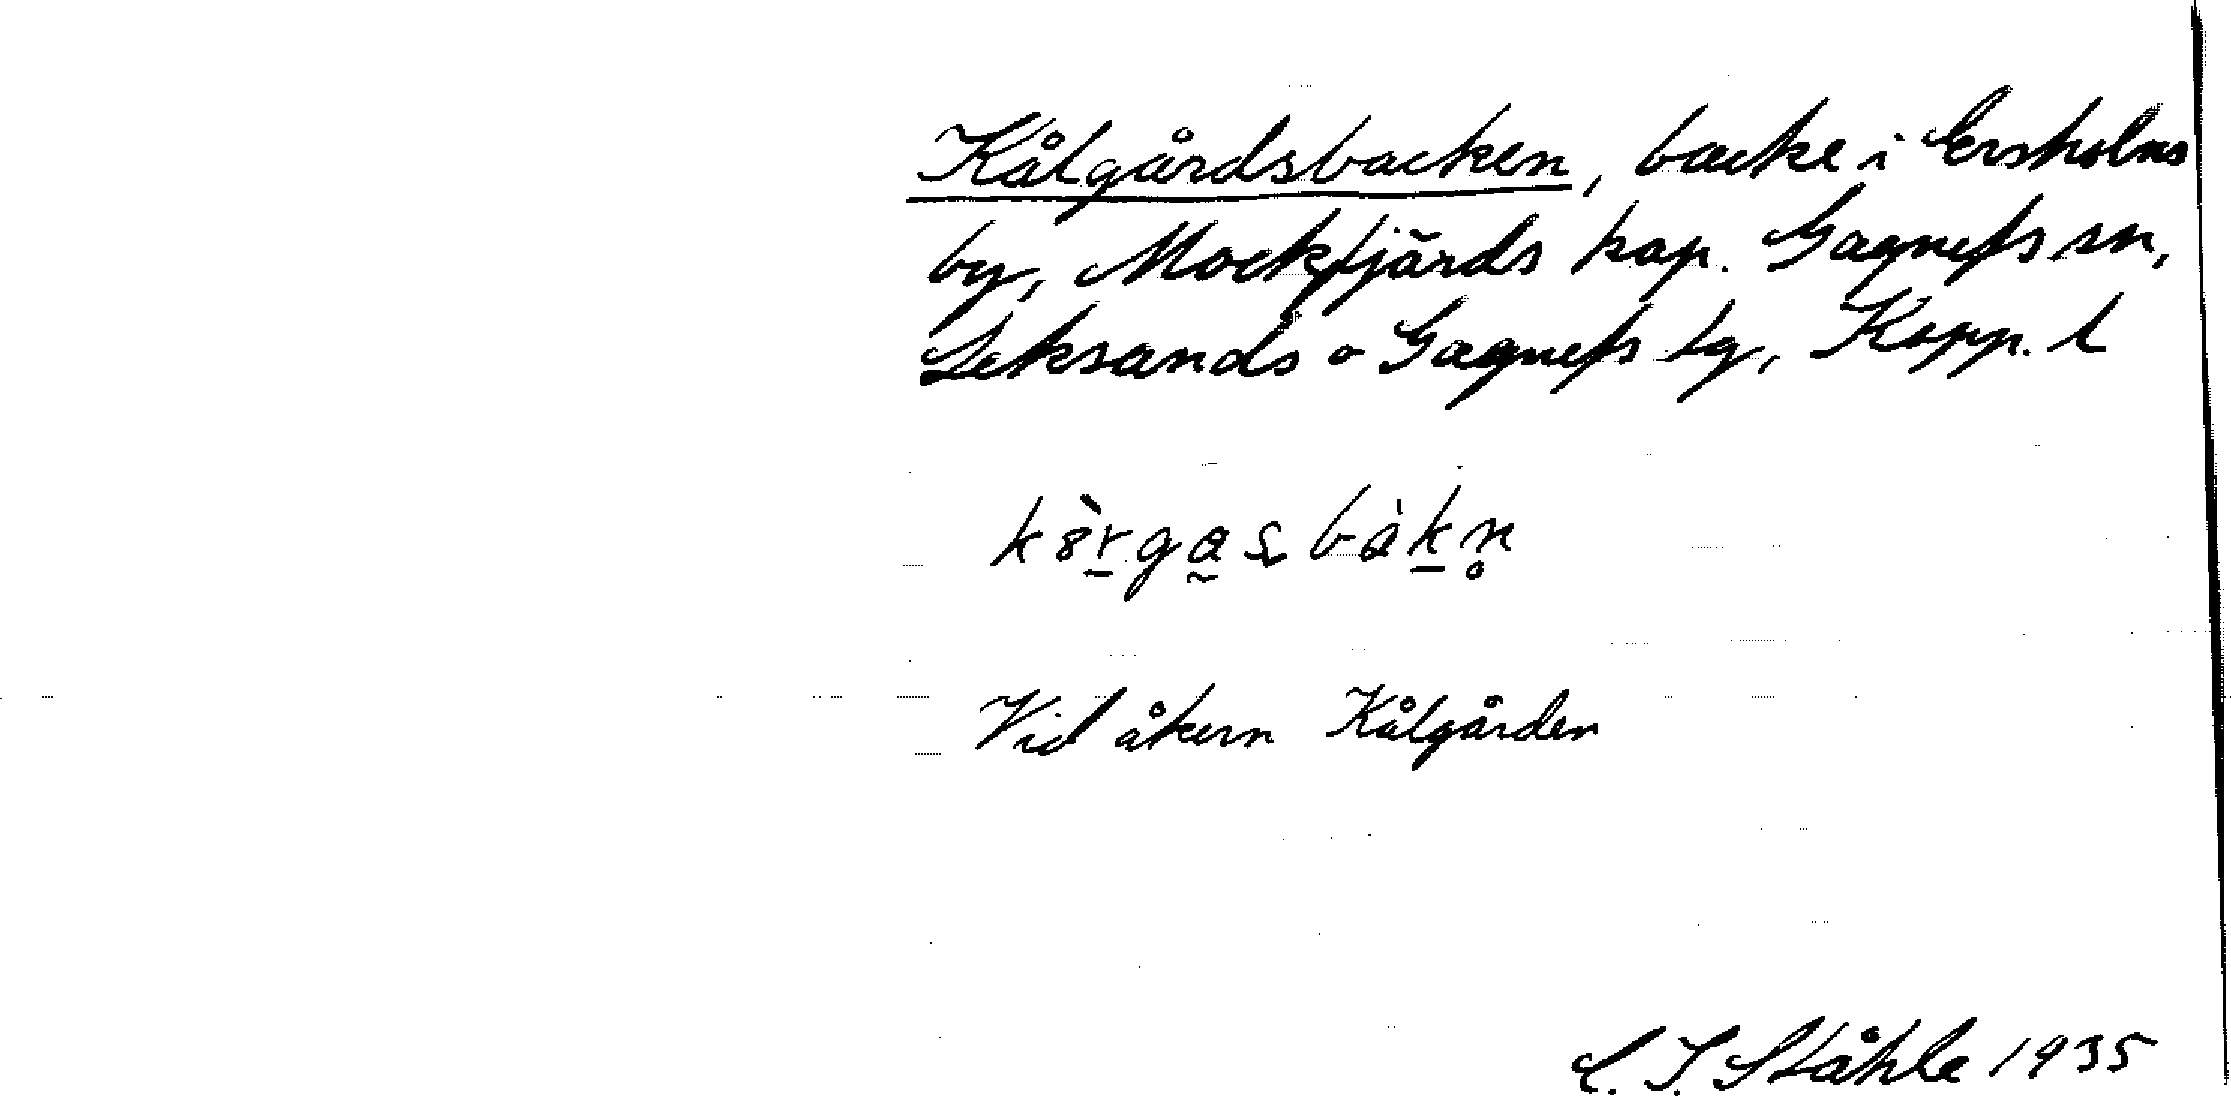 Kålgårdsbacken, backe i Ersholns
by, Mockfjärds kap. Gagnefs sn,
Leksands o Gagnefs tg, Kopp. l
Vid åkern Kålgården
C. I. Ståhle 1935